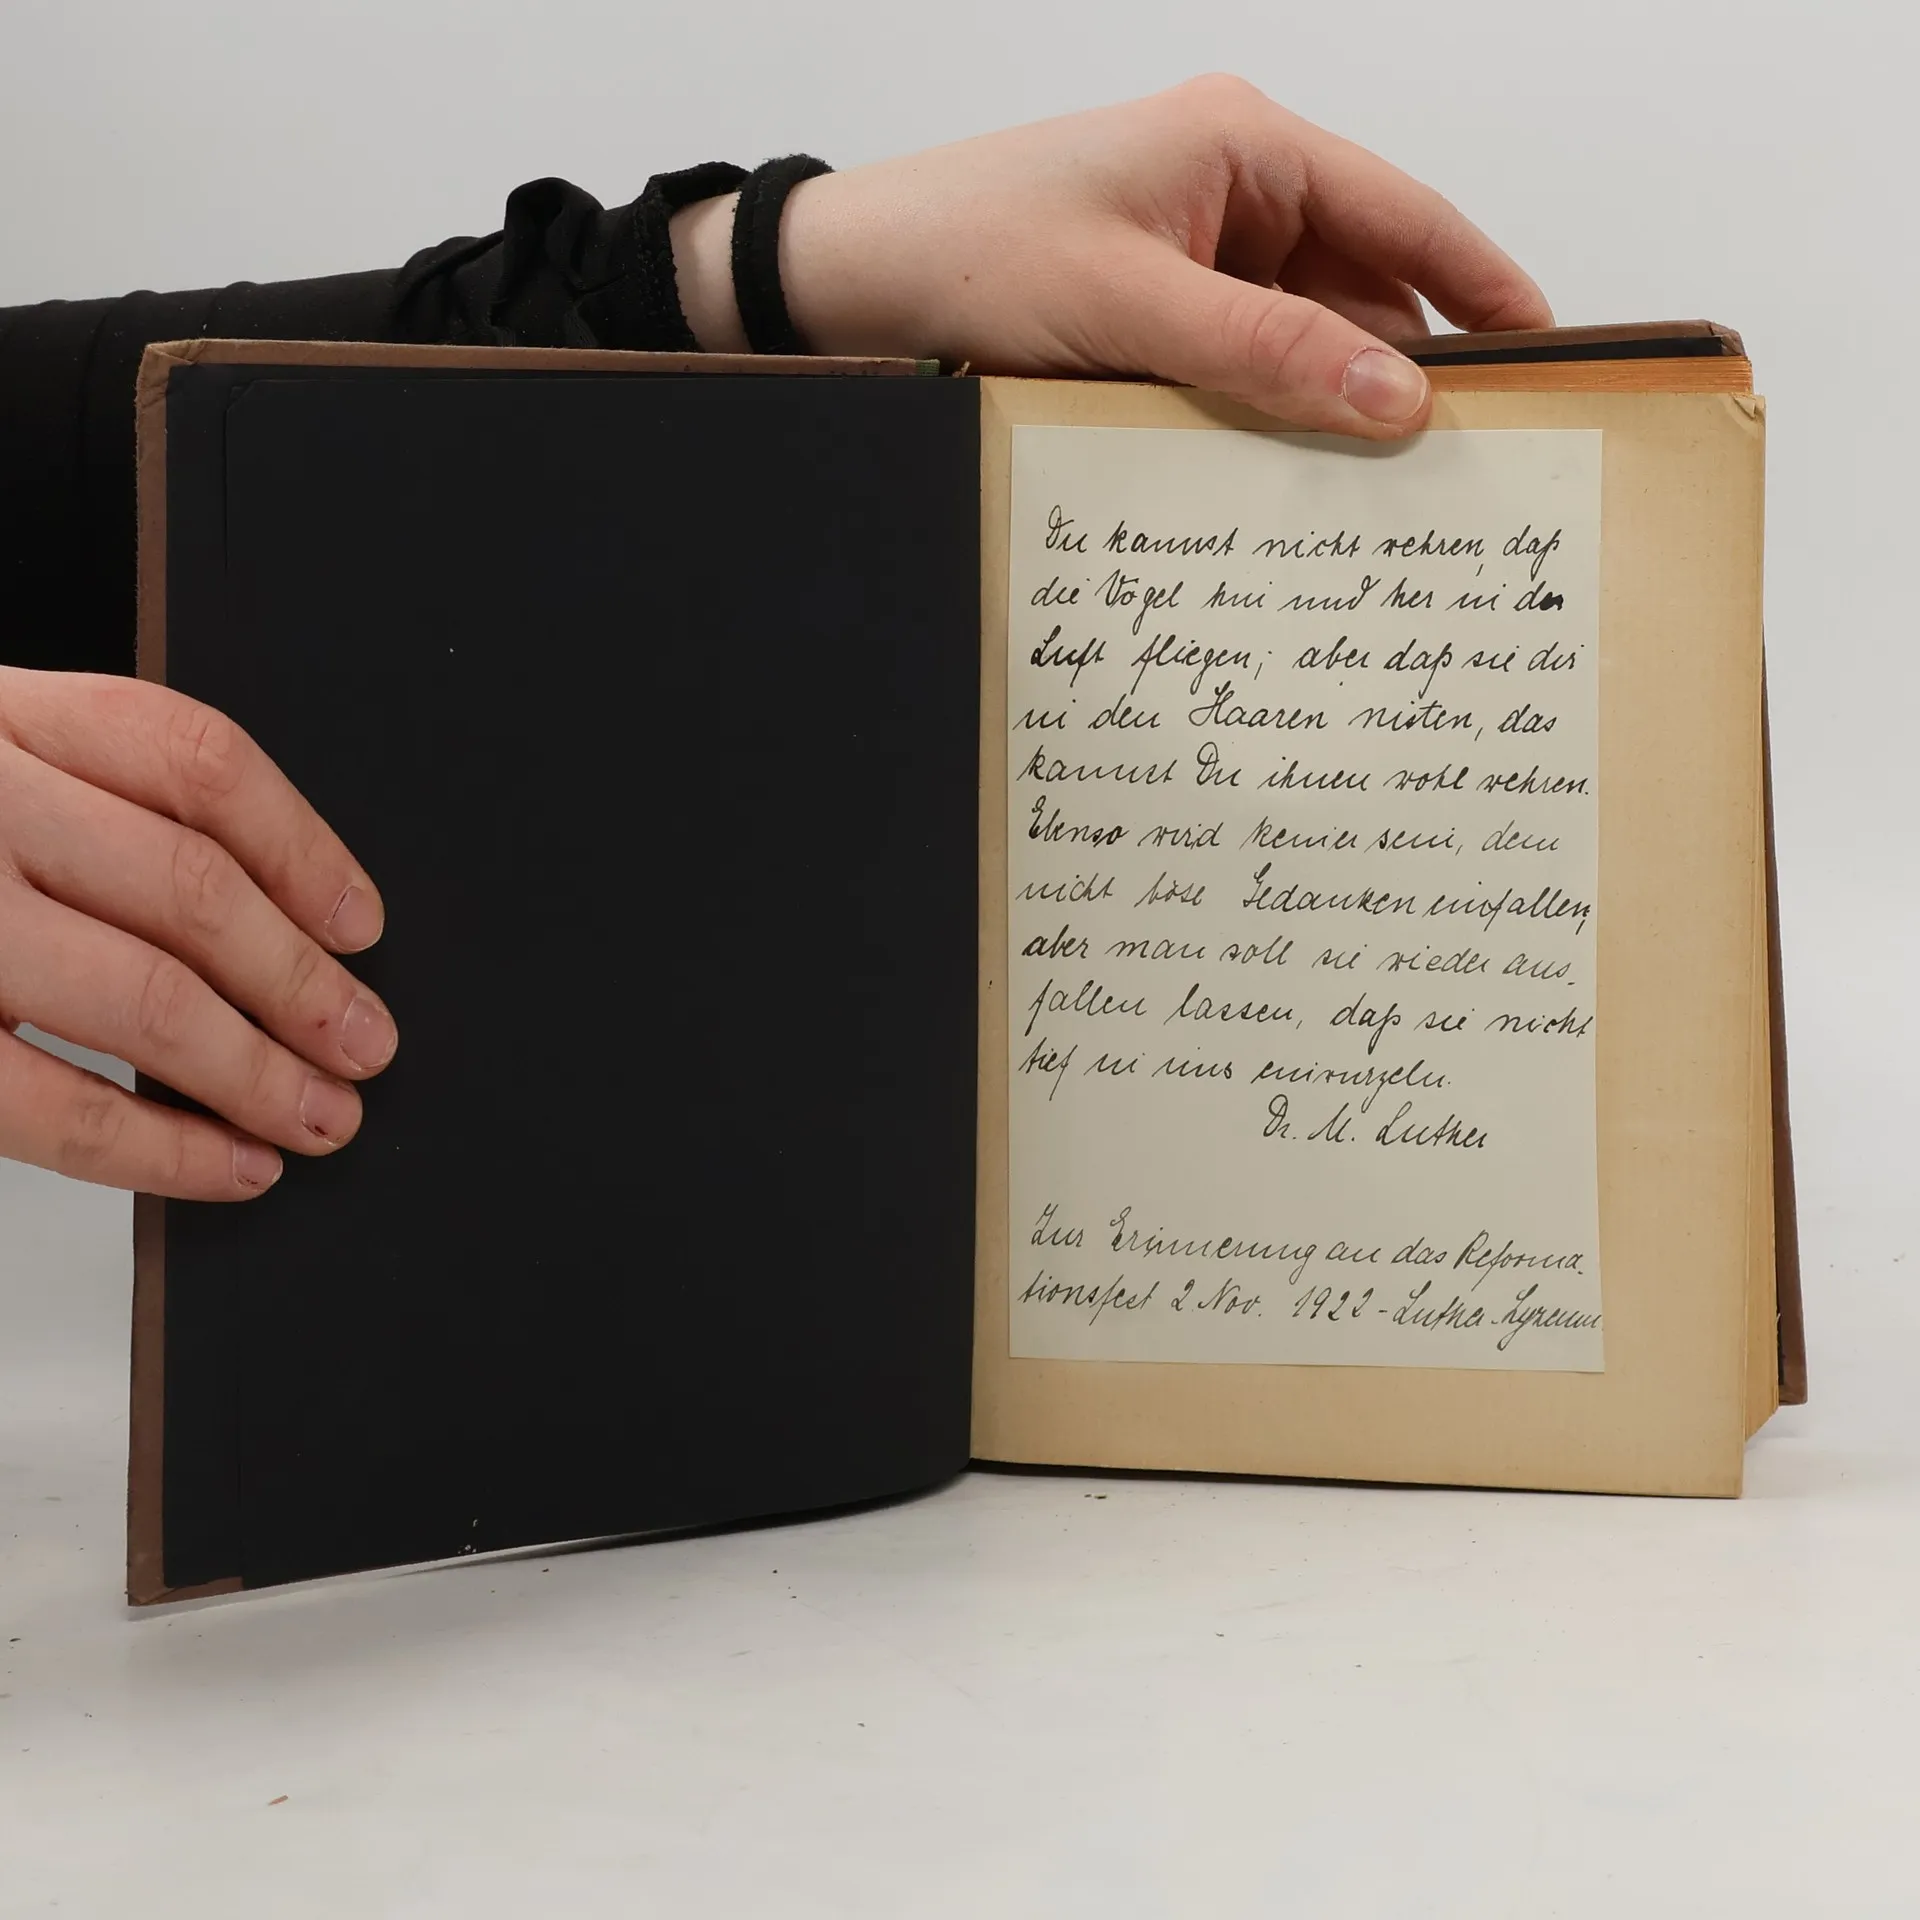 Du kannst nicht wehren, daß
die Vögel hin und her in der
Luft fliegen; aber daß sie dir
in den Haaren nisten, das
kannst Du ihnen wohl wehren.
Ebenso wird keiner sein, dem
nicht böse Gedanken einfallen;
aber man soll sie wieder aus-
fallen lassen, daß sie nicht
tief in uns einwurzeln.
Dr. M. Luther
Zur Erinnerung an das Reforma-
tionsfest 2. Nov. 1922 - Luther-Lyzeum